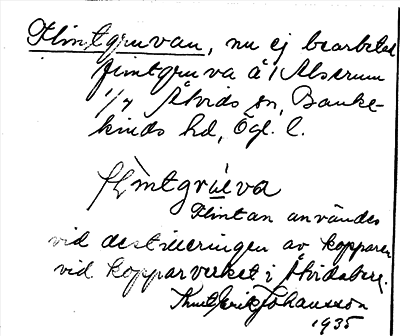 Flintgruvan, nu ej bearbetad
flintgruva å 1 Alserum
1/4 Åtvids sn, Banke-
kinds hd, Ögl. l.
flintgrúva
Flintan användes
vid destilleringen av kopparen
vid kopparverket i Åtvidaberg.
Knut Erik Johansson
1935